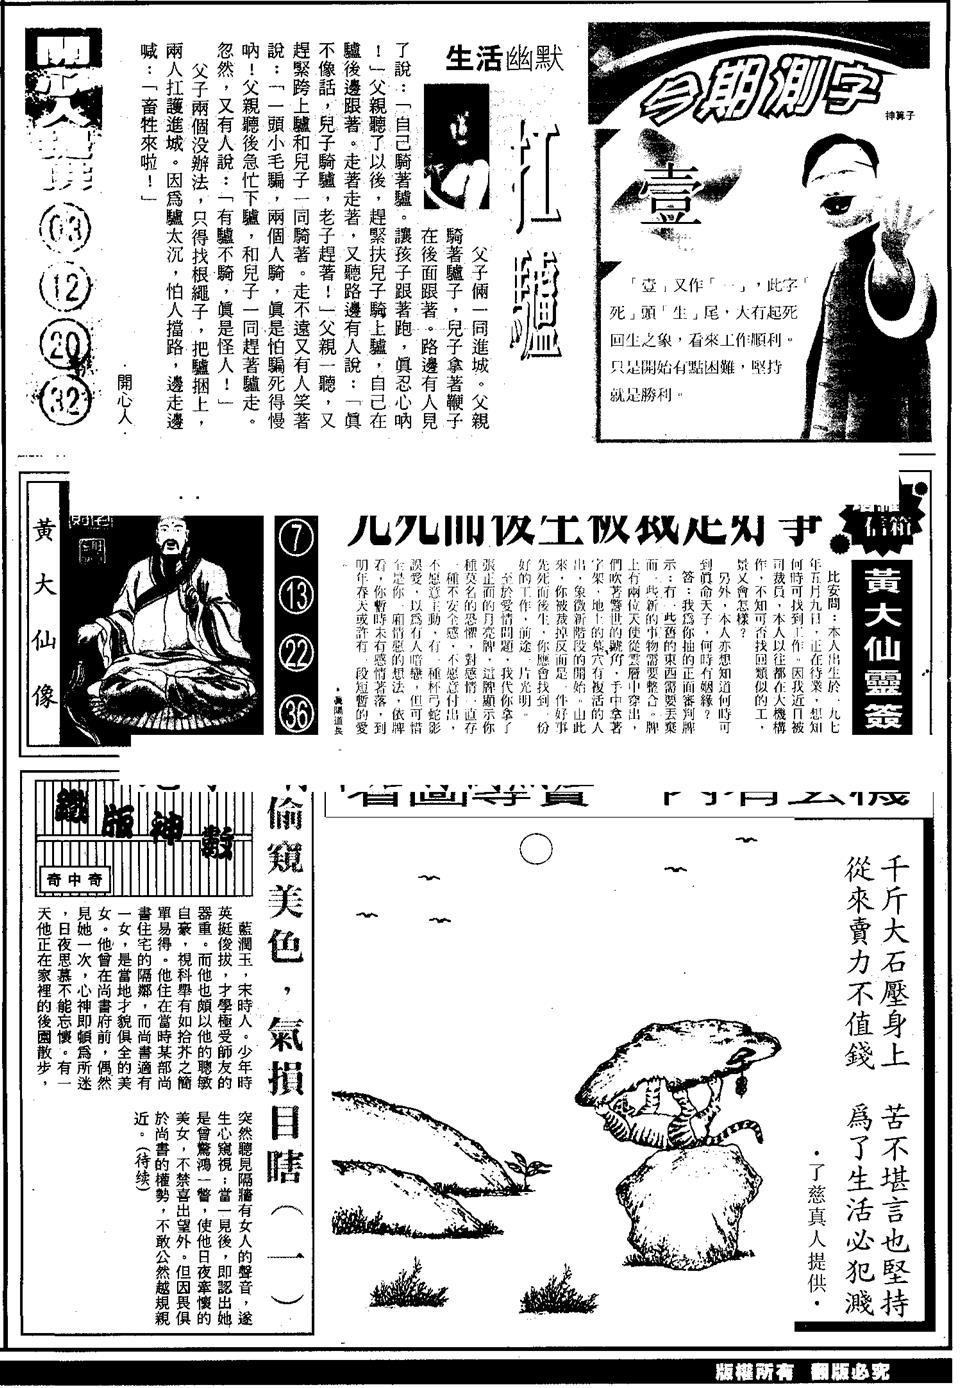 今期測字
神算子
壹
「壹」又作「一」，此字「
死」頭「生」尾，大有起死
回生之象，看來工作順利。
只是開始有點困難，堅持
就是勝利。
生活幽默
扛驢
父子倆一同進城。父親
騎著驢子，兒子拿著鞭子
在後面跟著。路邊有人見
了說：「自己騎著驢。讓孩子跟著跑，眞忍心吶
！」父親聽了以後，趕緊扶兒子騎上驢，自己在
驢後邊跟著。走著走著，又聽路邊有人說：「眞
不像話，兒子騎驢，老子趕著！」父親一聽，又
趕緊跨上驢和兒子一同騎著。走不遠又有人笑著
說：「一頭小毛騙，兩個人騎，眞是怕騙死得慢
吶！父親聽後急忙下驢，和兒子一同趕著驢走。
忽然，又有人說：「有驢不騎，眞是怪人！」
父子兩個没辦法，只得找根繩子，把驢捆上，
兩人扛護進城。因爲驢太沉，怕人擋路，邊走邊
喊：「畜牲來啦！」
．開心人．
03
12
20
32
信箱
黃大仙靈簽
先死而後生被裁是好事
比安問：本人出生於一九七
年五月九日，正在待業，想知
何時可找到工作。因我近日被
司裁員，本人以往都在大機構
作，不知可否找回類似的工，
景又會怎樣？
另外，本人亦想知道何時可
到眞命天子，何時有姻緣？
答：我爲你抽的正面審判牌
示：有一些舊的東西需要丟棄
而一些新的事物需要整合。牌
上有兩位天使從雲層中穿出，
們吹著警世的號角，手中拿著
字架，地上的墓穴有複活的人
出，象徵新階段的開始。由此
來，你被裁掉反而是一件好事
先死而後生，你應會找到一份
好的工作，前途一片光明。
至於愛情問題，我代你拿了
張正面的月亮牌，這牌顯示你
種莫名的恐懼，對感情一直存
一種不安全感，不愿意付出，
不愿意主動，有一種杯弓蛇影
誤愛，以爲有人暗戀，但可惜
全是你一厢情愿的想法，依牌
看，你暫時未有感情著落，到
明年春天或許有一段短暫的愛
．眞陽道長
7
13
22
36
黃大仙像
機玄有内　賣專圖看
千斤大石壓身上　苦不堪言也堅持
從來賣力不值錢　爲了生活必犯濺
．了慈真人提供．
偷窺美色，氣損目瞎（一）
鐵版神數
奇中奇
藍潤玉，宋時人。少年時
英挺俊拔，才學極受師友的
器重。而他也頗以他的聰敏
自豪，視科舉有如拾芥之簡
單易得。他住在當時某部尚
書住宅的隔鄰，而尚書適有
一女，是當地才貌俱全的美
女。他曾在尚書府前，偶然
見她一次，心神即頓爲所迷
，日夜思慕不能忘懷。有一
天他正在家裡的後園散步，
突然聽見隔牆有女人的聲音，遂
生心窺視；當一見後，即認出她
是曾驚鴻一瞥，使他日夜牽懷的
美女，不禁喜出望外。但因畏俱
於尚書的權勢，不敢公然越規親
近。（待续）
版權所有　翻版必究